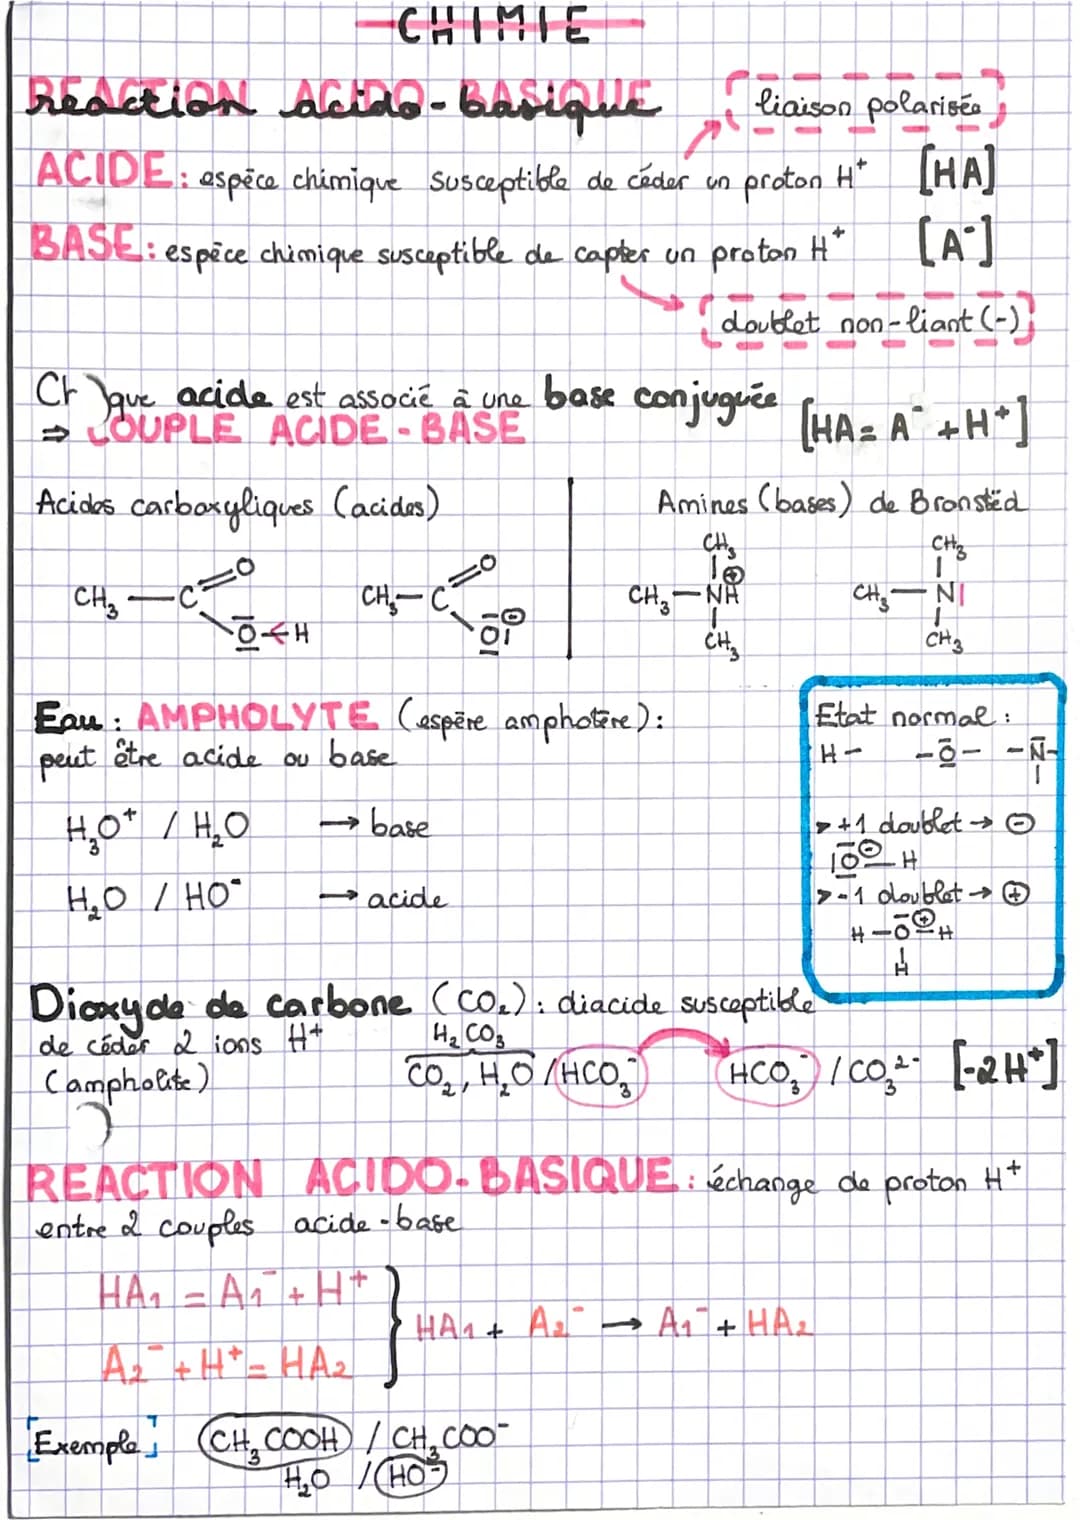 CHIMIE
REACTION ACIDO-BASIQUE
réaction acido-basique
liaison polarisée
ACIDE : espèce chimique susceptible de céder un proton H⁺ [HA]
BASE : espèce chimique susceptible de capter un proton H⁺ [A⁻]
doublet non-liant (-)
que acide est associé à une base conjuguée
⇒ COUPLE ACIDE-BASE [HA = A⁻ + H⁺]
Acides carboxyliques (acides)
Amines (bases) de Bronstëd
CH₃ — C O O H
CH₃ — C O O ⊖
CH₃ CH₃ — NH ⊕ CH₃
CH₃ CH₃ — N| CH₃
Eau : AMPHOLYTE (espère amphotère) :
peut être acide ou base
H₃O⁺ / H₂O → base
H₂O / HO⁻ → acide
Etat normal :
H – – O – – N –
> +1 doublet → ⊖
|O⊖ – H
> -1 doublet → ⊕
H – O⊕ – H
H
Dioxyde de carbone (CO₂) : diacide susceptible
de céder 2 ions H⁺
(ampholite)
H₂CO₃
CO₂, H₂O / HCO₃⁻ HCO₃⁻ / CO₃²⁻ [-2H⁺]
REACTION ACIDO-BASIQUE : échange de proton H⁺
entre 2 couples acide-base
HA₁ = A₁⁻ + H⁺
A₂⁻ + H⁺ = HA₂
HA₁ + A₂⁻ → A₁⁻ + HA₂
[Exemple] CH₃COOH / CH₃COO⁻
H₂O / HO⁻